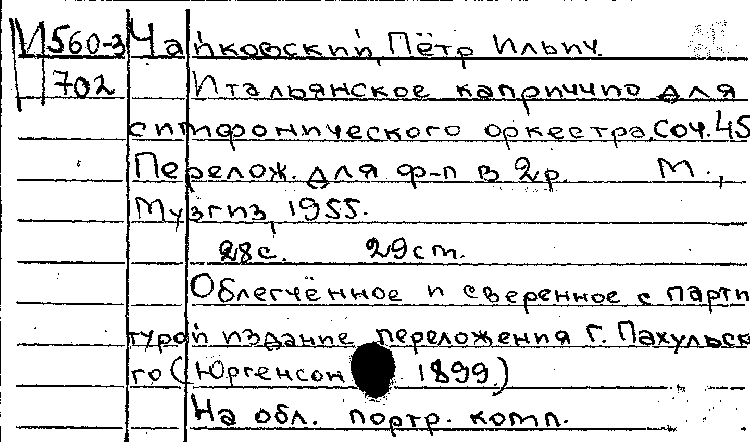 М560-3 Чайковский, Пётр Ильич.
702 Итальянское каприччио для
симфонического оркестра. Соч. 45
Перелож. для ф-п в 2 р. М.,
Музгиз, 1955.
28 с. 29 см.
Облегчённое и сверенное с парти
турой издание переложения Г. Пахульск
го (Юргенсон 1899.)
На обл. портр. комп.